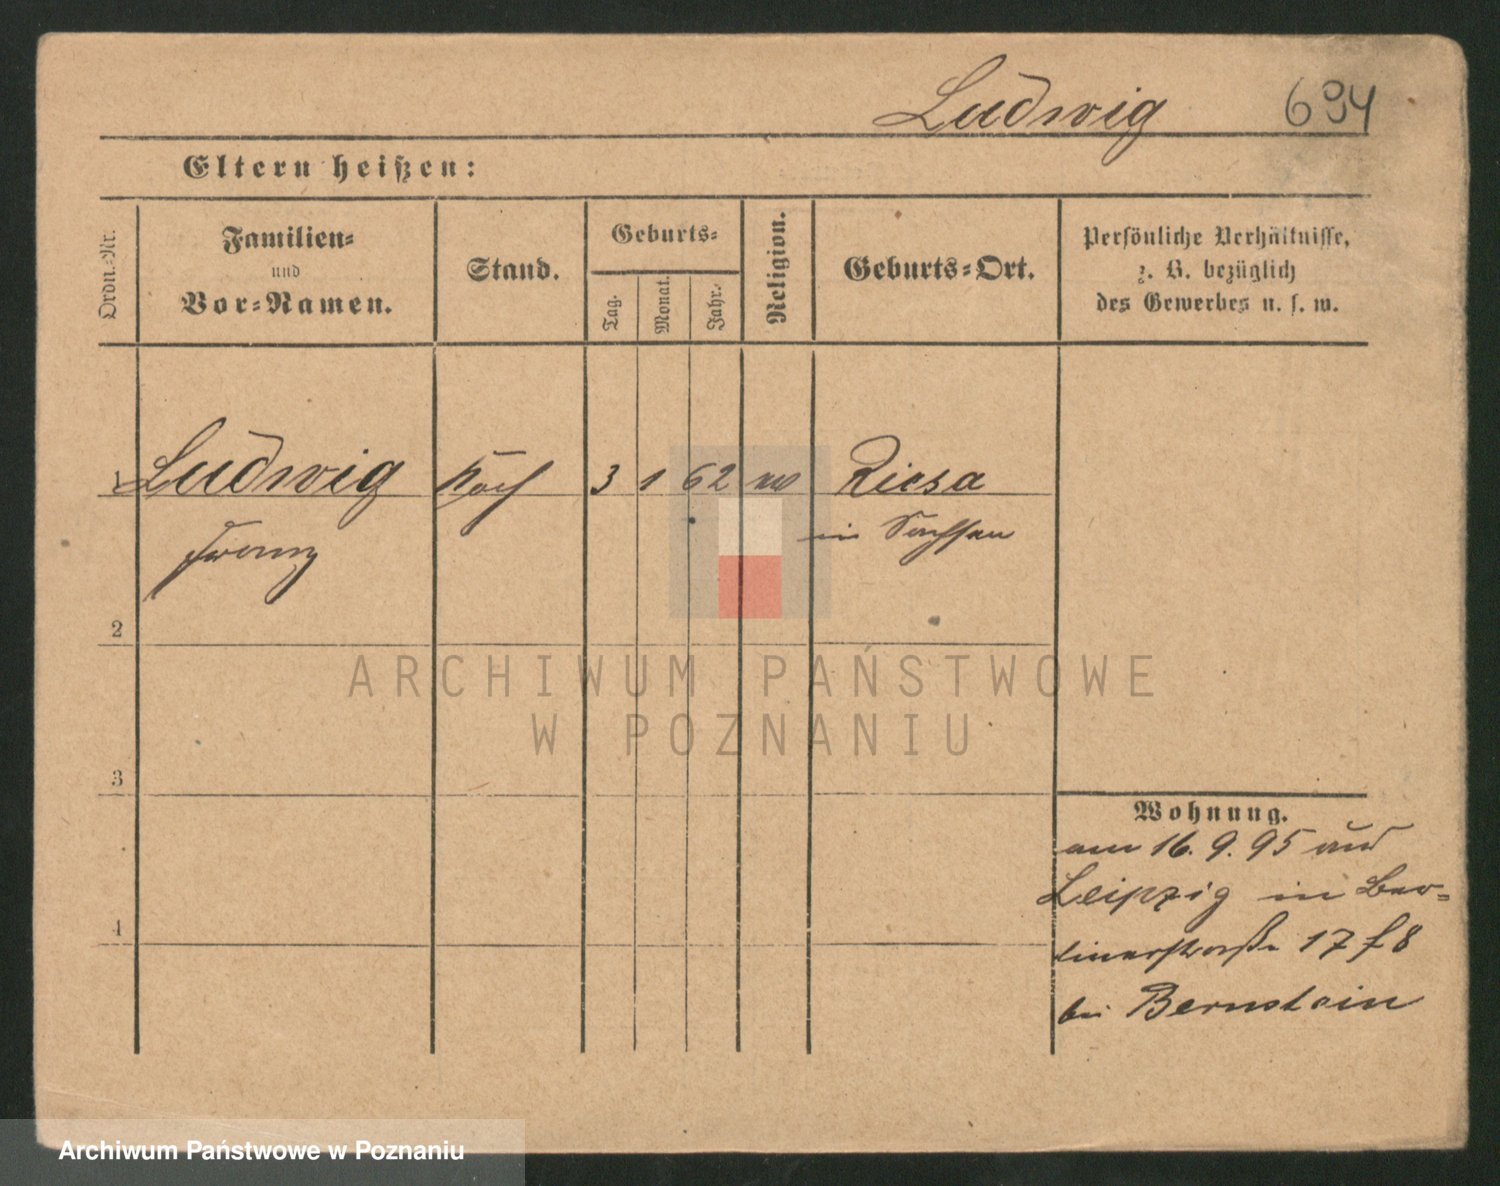 Ludwig 694
Eltern heißen:
Ordn.-Nr.
Familien-
und
Vor-Namen.
Stand.
Geburts-
Tag.
Monat.
Jahr.
Religion.
Geburts-Ort.
Persönliche Verhältnisse,
z. B. bezüglich
des Gewerbes u. s. w.
1 Ludwig Koch 3 1 62 Riesa
Franz in Sachsen
2
3
4
Wohnung.
am 16. 9. 95 aus
Leipzig in Ber-
linerstraße 17 f 8
bei Bernstein
ARCHIWUM PAŃSTWOWE
W POZNANIU
Archiwum Państwowe w Poznaniu